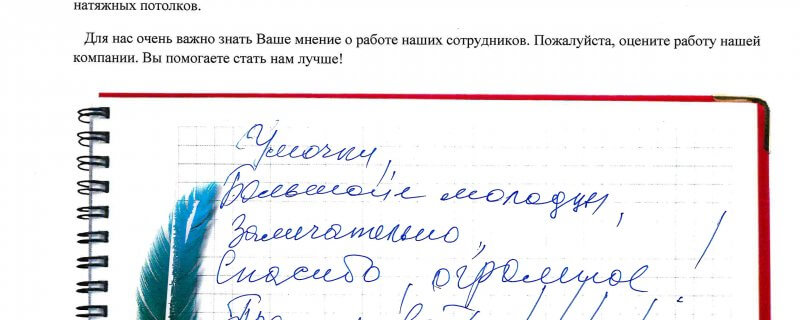 натяжных потолков.
Для нас очень важно знать Ваше мнение о работе наших сотрудников. Пожалуйста, оцените работу нашей
компании. Вы помогаете стать нам лучше!
Умочки,
Большойе молодцы,
Замечательно,
Спасибо, огромное!